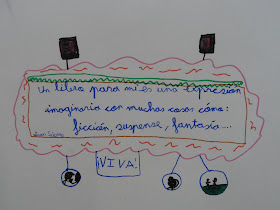 Un libro para mi es una expresión
imaginaria con muchas cosas cómo:
ficción, suspense, fantasía....
¡VIVA!